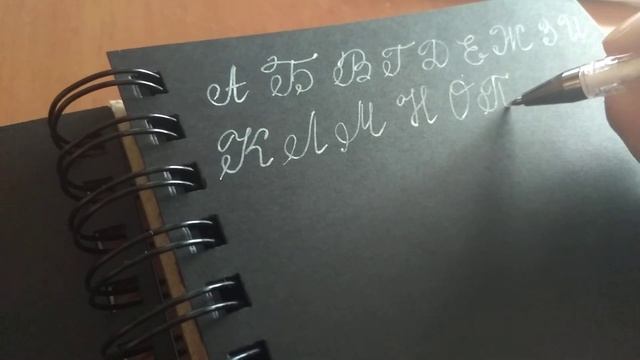 А Б В Г Д Е Ж З И
К Л М Н О П